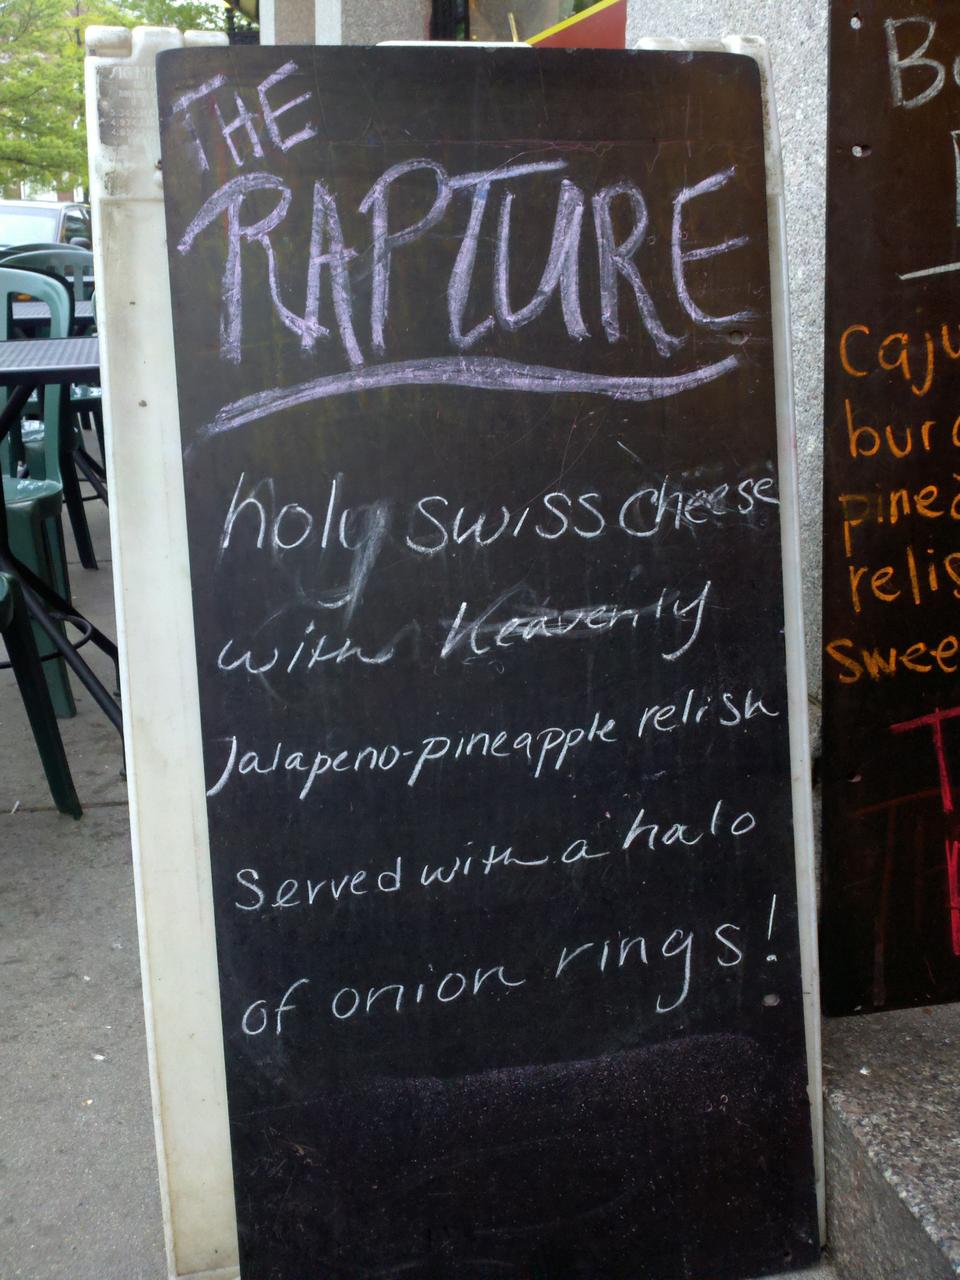 THE
RAPTURE
holy swiss cheese
with heavenly
Jalapeno-pineapple relish
Served with a halo
of onion rings!
B
Caju
bur
pine
relis
swee
T